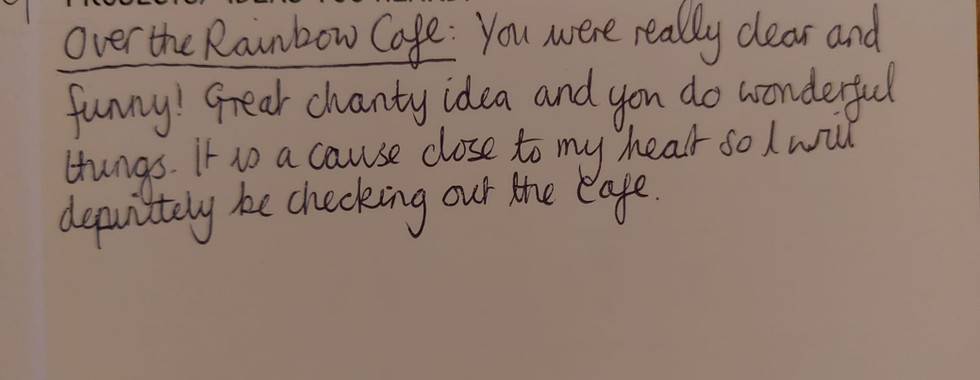 PROJECTS/ IDEAS YOU HEARD:
Over the Rainbow Cafe: You were really clear and
funny! Great charity idea and you do wonderful
things. It is a cause close to my heart so I will
definitely be checking out the cafe.